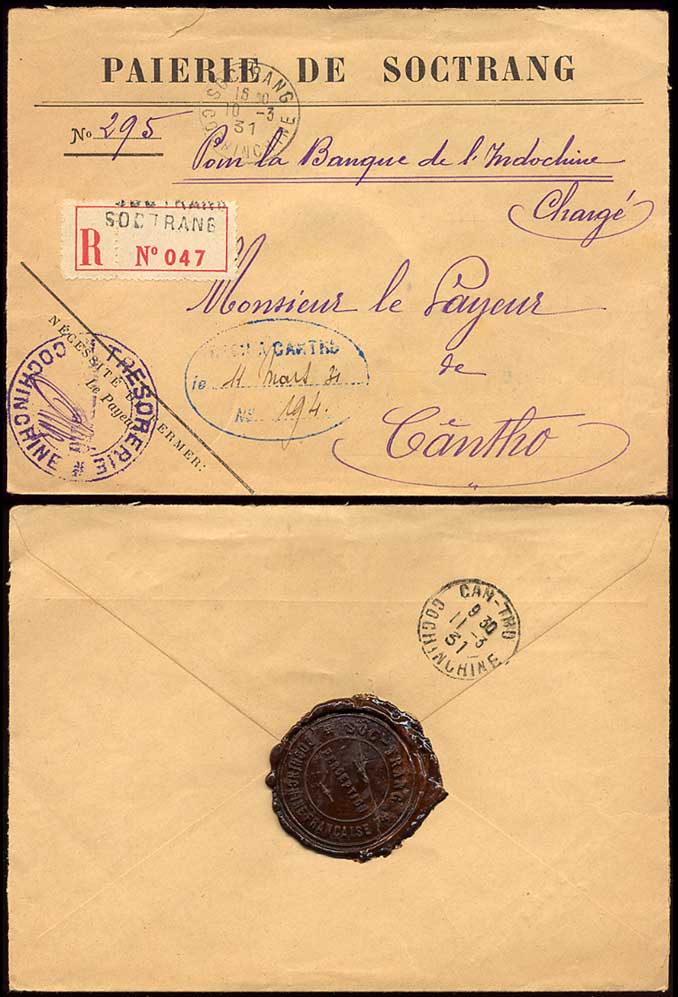 PAIERIE DE SOCTRANG
SOCTRANG
16 30
10 -3
31
COCHINCHINE
No 295
Pour la Banque de l'Indochine
Chargé
SOCTRANG
SOCTRANG
R No 047
Monsieur le Payeur
de
Cântho
CANTHO
le 11 Mars 31
No 194.
NÉCESSITÉ DE FERMER:
Le Payeur
TRESORERIE
COCHINCHINE
CAN-THO
9 30
11 -3
31
COCHINCHINE
SOC-TRANG
PERCEPTION
COCHINCHINE FRANÇAISE